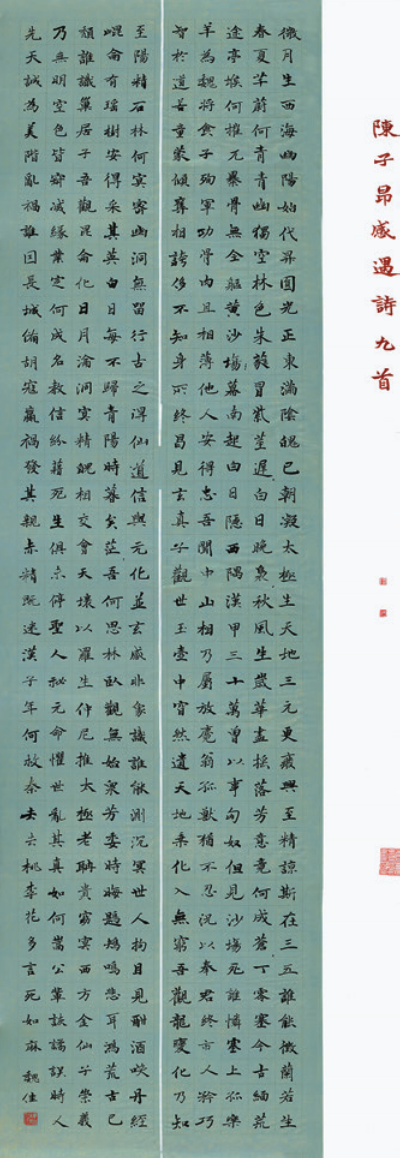 陳子昂感遇詩九首
微月生西海幽陽始代昇圓光正東滿陰魄已朝凝太極生天地三元更廢興至精諒斯在三五誰能徵蘭若生
春夏芊蔚何青青幽獨空林色朱蕤冒紫莖遲〻白日晚裊〻秋風生歲華盡搖落芳意竟何成蒼〻丁零塞今古緬荒
途亭堠何摧兀暴骨無全軀黃沙場幕南起白日隱西隅漢甲三十萬曾以事匈奴但見沙場死誰憐塞上孤樂
羊為魏將食子殉軍功骨肉且相薄他人安得忠吾聞中山相乃屬放麑翁孤獸猶不忍況以奉君終市人矜巧
智於道若童蒙傾奪相誇侈不知身所終曷見玄真子觀世玉壺中窅然遺天地乘化入無窮吾觀龍變化乃知
至陽精石林何冥密幽洞無留行古之得仙道信與元化並玄感非象識誰能測沉冥世人拘目見酣酒笑丹經
崐侖有瑤樹安得采其英白日每不歸青陽時暮矣茫〻吾何思林臥觀無始眾芳委時晦鶗鴂鳴悲耳鴻荒古已
頹誰識巢居子吾觀昆侖化日月淪洞冥精魄相交會天壤以羅生仲尼推太極老聃貴窈冥西方金仙子崇義
乃無明空色皆寂滅緣業定何成名教信紛藉死生俱未停聖人秘元命懼世亂其真如何嵩公輩詼譎誤時人
先天誠為美階亂禍誰因長城備胡寇嬴禍發其親赤精既迷漢子年何救秦去去桃李花多言死如麻 魏佳